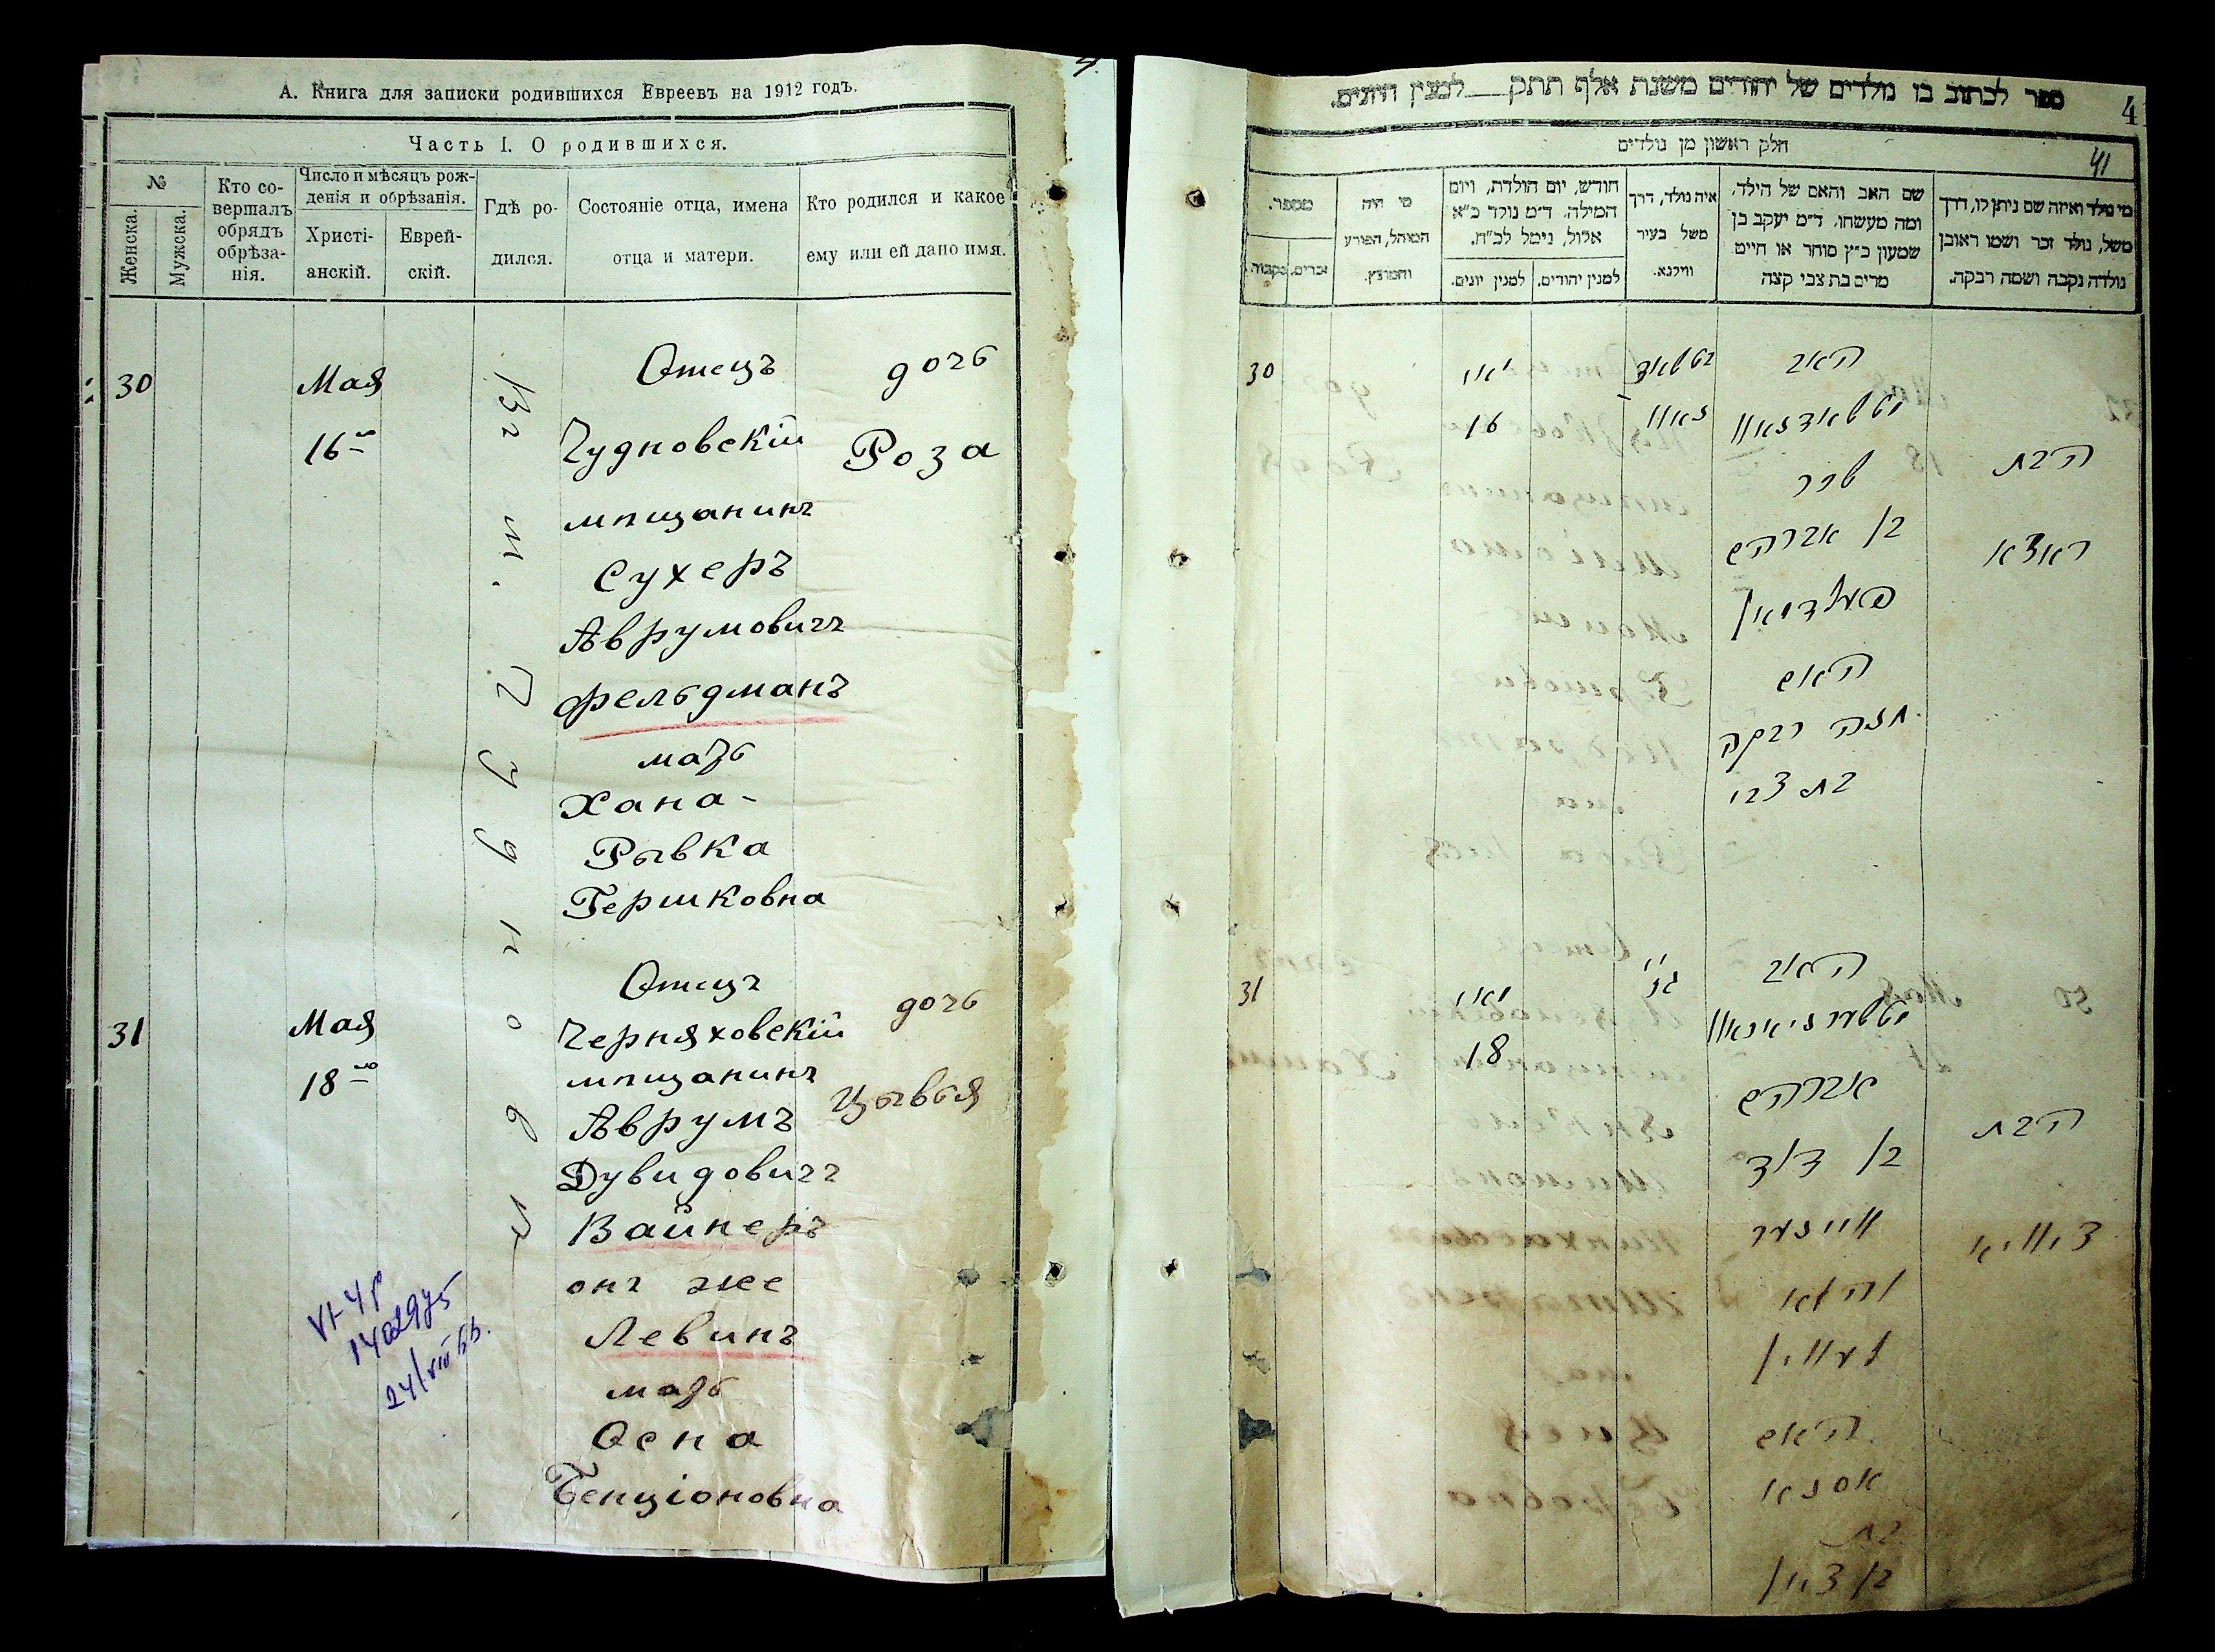 А. Книга для записки родившихся Евреевъ на 1912 годъ.
Часть I. О родившихся.
№
Женска.
Мужска.
Кто со-
вершалъ
обрядъ
обрѣза-
нія.
Число и мѣсяцъ рож-
денія и обрѣзанія.
Христі-
анскій.
Еврей-
скій.
Гдѣ ро-
дился.
Состояніе отца, имена
отца и матери.
Кто родился и какое
ему или ей дано имя.
30
Мая
16го
Въ м. Чудновѣ
Отецъ
Чудновскій
мѣщанинъ
Сухеръ
Аврумовичъ
Фельдманъ
мать
Хана-
Рывка
Гершковна
дочь
Роза
31
Мая
18го
Отецъ
Черняховскій
мѣщанинъ
Аврумъ
Дувидовичъ
Вайнеръ
онъ же
Левинъ
мать
Осна
Бенціоновна
дочь
Цывья
ספר לכתוב בו נולדים של יהודים משנת אלף תתק לפנין היונים.
4
41
חלק ראשון מן נולדים
מי נולד ואיזה שם ניתן לו, דרך
משל, נולד זכר ושמו ראובן
נולדה נקבה ושמה רבקה.
שם האב והאם של הילד,
ומה מעשהו, ד״מ יעקב בן
שמעון כ״ץ סוחר או חייט
מרים בת צבי קצה
איה נולד, דרך
משל בעיר
ווילנא.
חודש, יום הולדת, ויום
המילה, ד״מ נולד כ״א
אלול, נימל לכ״ח.
למנין יהודים.
למנין יונים.
מי היה
המוהל, הפורע
והמוצץ.
מספר.
זכרים.
נקבות.
30
מאי
16
האב
בן אברהם
פעלדמאן
האם
חנה רבקה
בת צבי
הבת
ראזא
31
מאי
18
האב
אברהם
בן דוד
וויינער
והוא
לעווין
האם
אסנא
בת
בן ציון
הבת
ציוויא